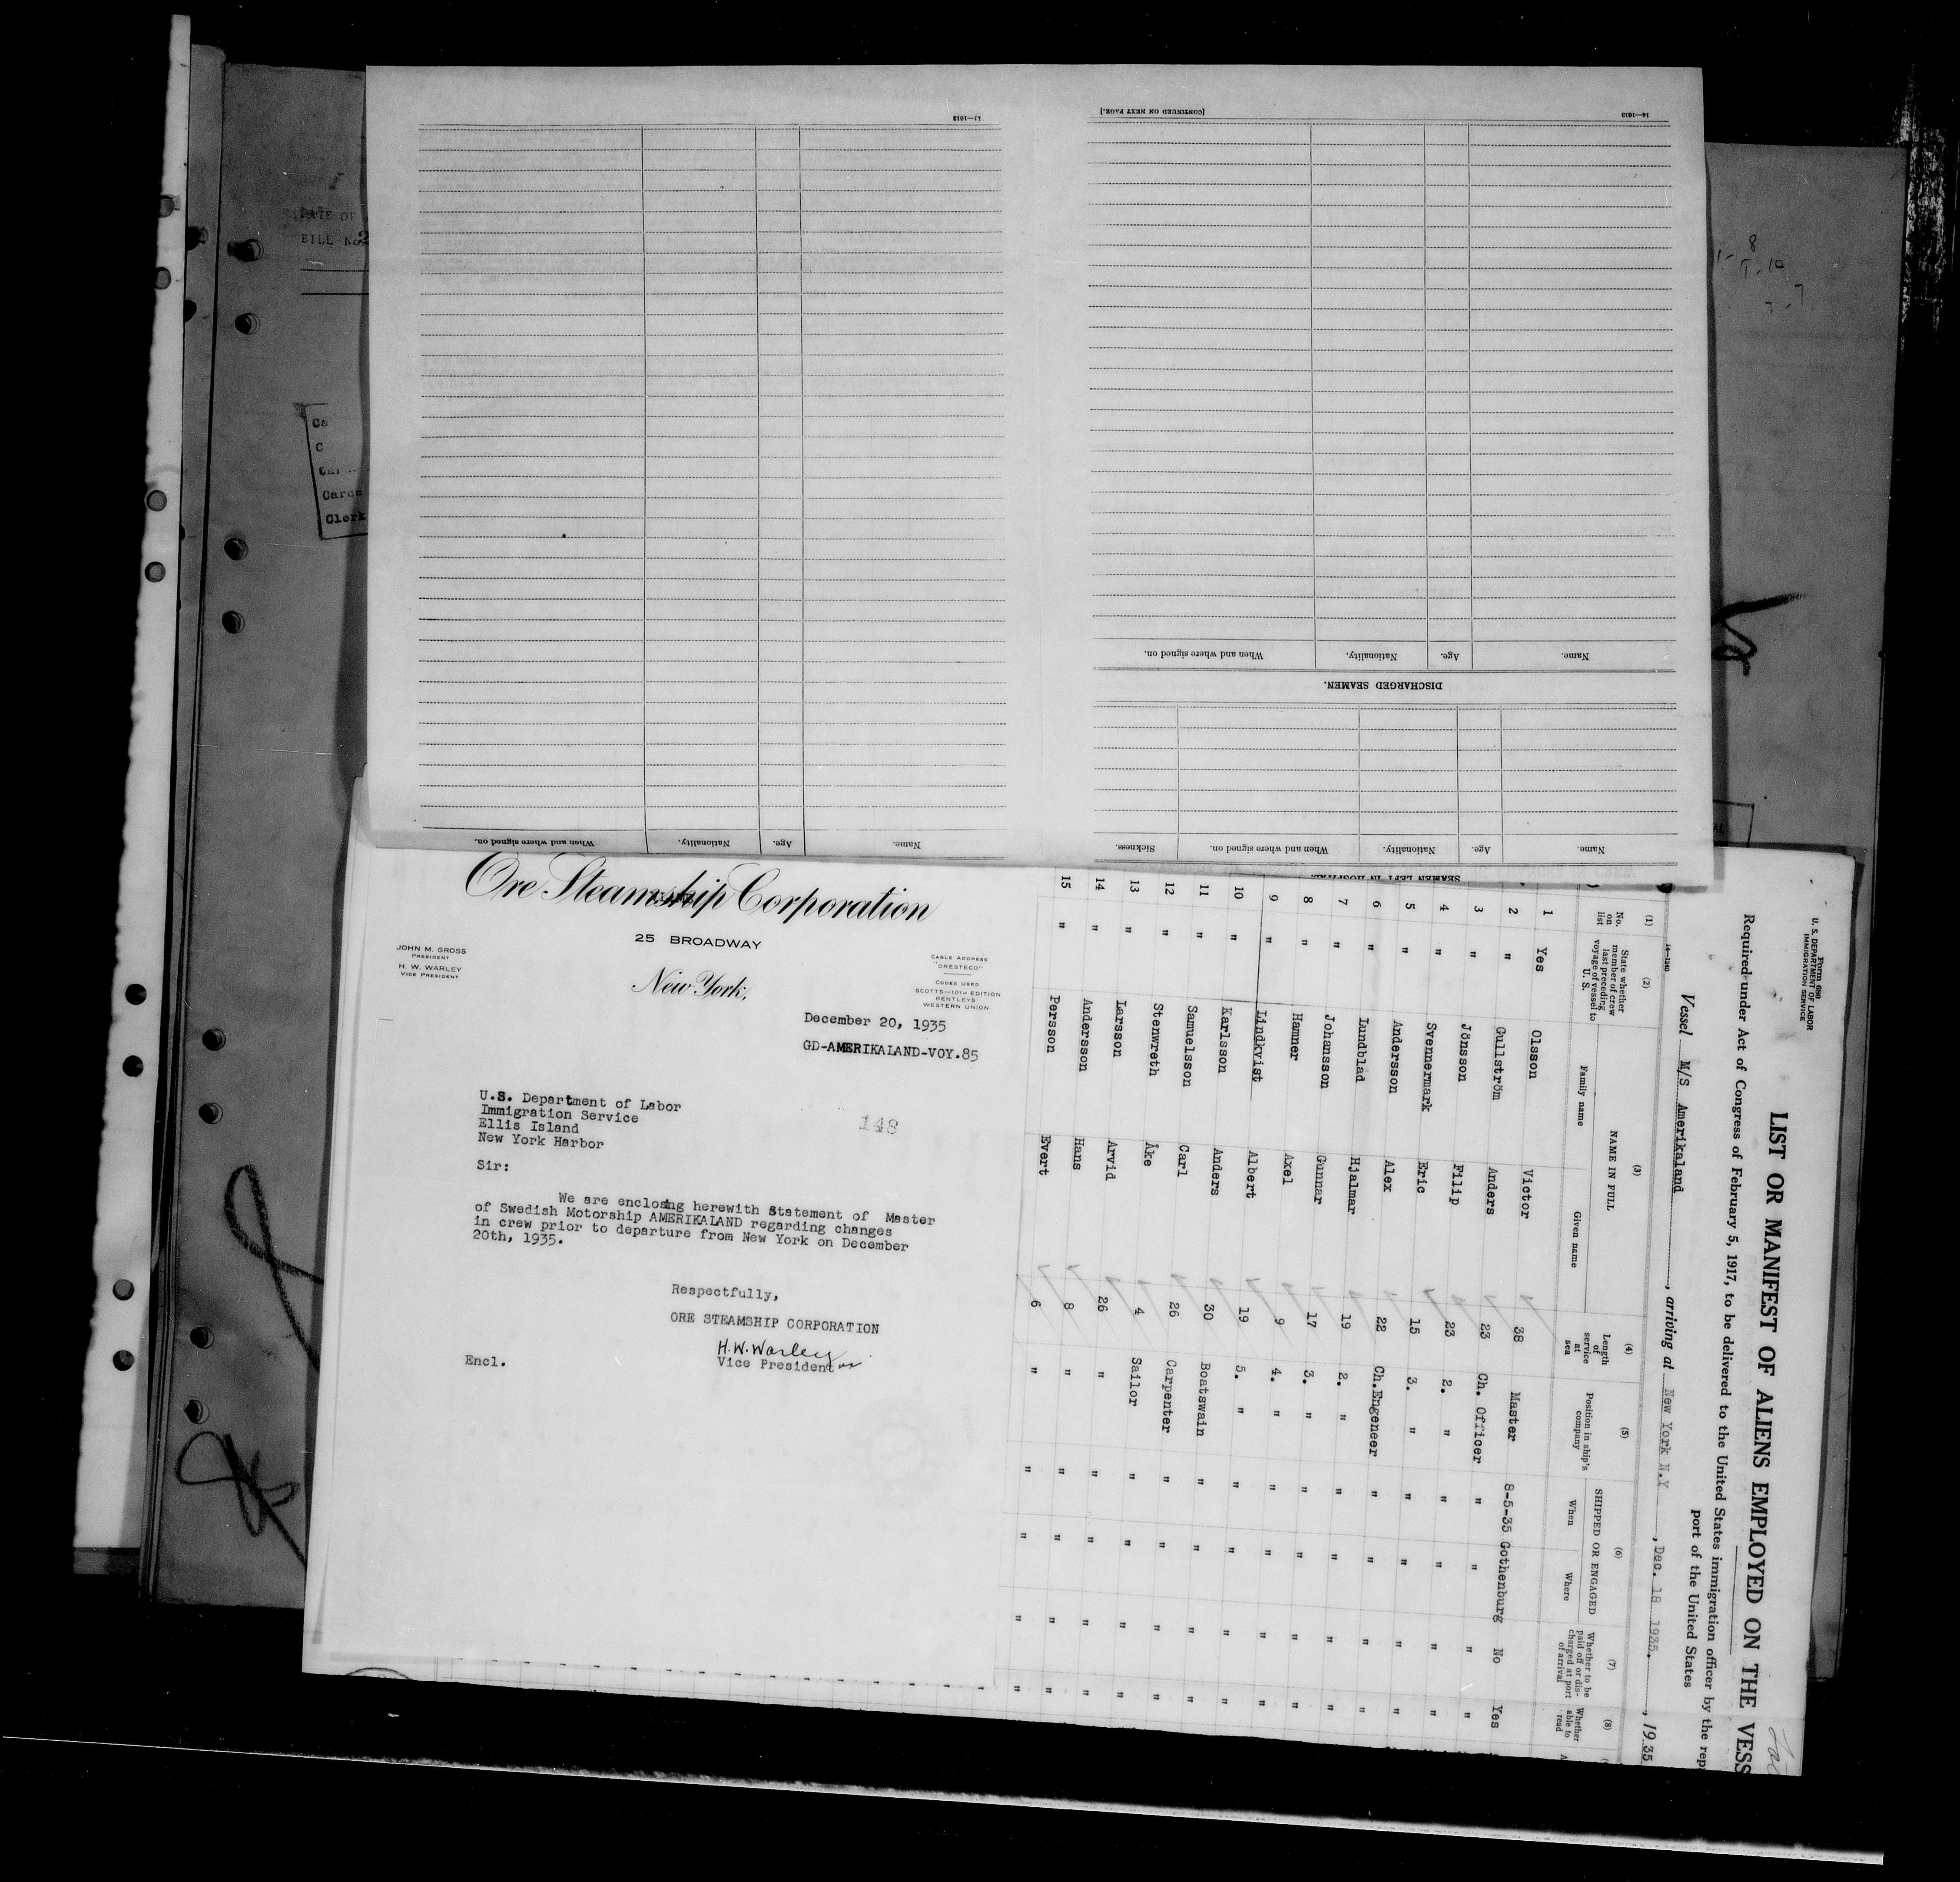 14—1613
When and where signed on.
Nationality.
Age.
Name.
[CONTINUED ON NEXT PAGE.]
14—1613
When and where signed on.
Nationality.
Age.
Name.
DISCHARGED SEAMEN.
Sickness.
When and where signed on.
Nationality.
Age.
Name.
SEAMEN LEFT IN HOSPITAL.
DATE OF
BILL No. 2
Clerk
Ore Steamship Corporation
25 BROADWAY
New York,
JOHN M. GROSS
PRESIDENT
H. W. WARLEY
VICE PRESIDENT
CABLE ADDRESS
"ORESTECO"
CODES USED
SCOTTS—10TH EDITION
BENTLEYS
WESTERN UNION
December 20, 1935
GD-AMERIKALAND-VOY.85
U.S. Department of Labor
Immigration Service
Ellis Island
New York Harbor
148
Sir:
We are enclosing herewith Statement of Master
of Swedish Motorship AMERIKALAND regarding changes
in crew prior to departure from New York on December
20th, 1935.
Respectfully,
ORE STEAMSHIP CORPORATION
H.W.Warley
Vice President
Encl.
Form 680
U. S. DEPARTMENT OF LABOR
IMMIGRATION SERVICE
LIST OR MANIFEST OF ALIENS EMPLOYED ON THE VESS
Required under Act of Congress of February 5, 1917, to be delivered to the United States immigration officer by the rep
port of the United States
Vessel M/S Amerikaland, arriving at New York N.Y, Dec. 18 1935., 1935
14—1240
(1) (2) (3) (4) (5) (6) (7) (8)
No. on list
State whether member of crew last preceding voyage of vessel to U. S.
NAME IN FULL
Family name
Given name
Length of service at sea
Position in ship's company
SHIPPED OR ENGAGED
When
Where
Whether to be paid off or discharged at port of arrival
Whether able to read
1 Yes Olsson Victor 38 Master 8-5-35 Gothenburg No Yes
2 " Gullström Anders 23 Ch. Officer " " " "
3 " Jönsson Filip 23 2. " " " " "
4 " Svennermark Eric 15 3. " " " " "
5 " Andersson Alex 22 Ch.Engeneer " " " "
6 " Lundblad Hjalmar 19 2. " " " " "
7 " Johansson Gunnar 17 3. " " " " "
8 " Hamner Axel 9 4. " " " " "
9 " Lindkvist Albert 19 5. " " " " "
10 " Karlsson Anders 30 Boatswain " " " "
11 " Samuelsson Carl 26 Carpenter " " " "
12 " Stenwreth Åke 4 Sailor " " " "
13 " Larsson Arvid 26 " " " " "
14 " Andersson Hans 8 " " " " "
15 " Persson Evert 6 " " " " "